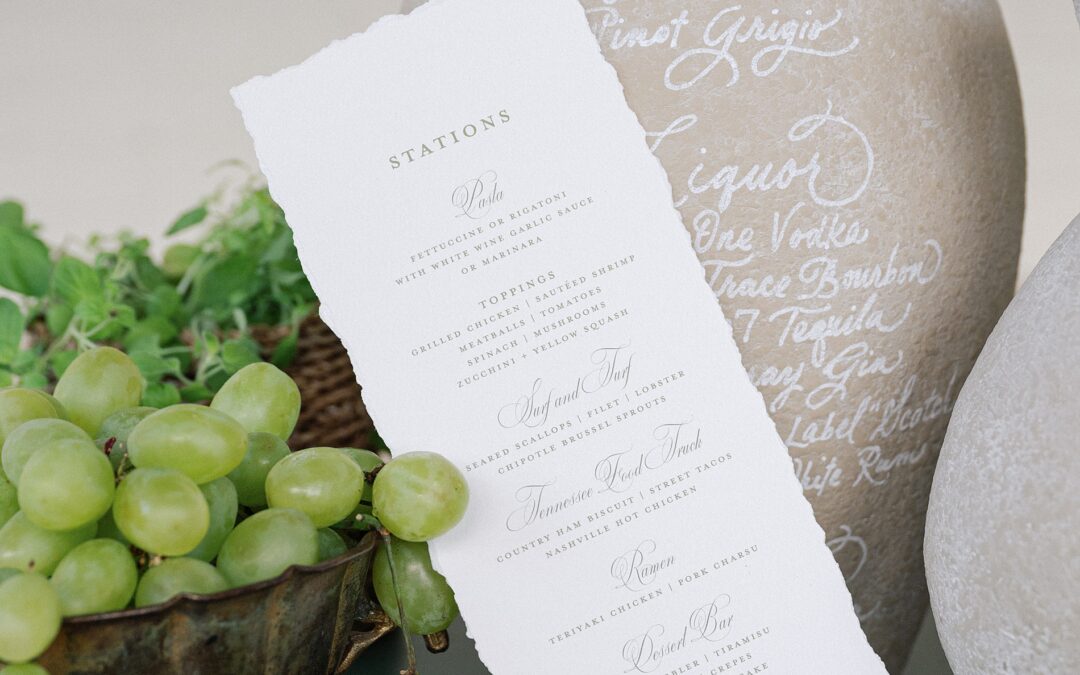 STATIONS
Pasta
FETTUCCINE OR RIGATONI
WITH WHITE WINE GARLIC SAUCE
OR MARINARA
TOPPINGS
GRILLED CHICKEN | SAUTÉED SHRIMP
MEATBALLS | TOMATOES
SPINACH | MUSHROOMS
ZUCCHINI + YELLOW SQUASH
Surf and Turf
SEARED SCALLOPS | FILET | LOBSTER
CHIPOTLE BRUSSEL SPROUTS
Tennessee Food Truck
COUNTRY HAM BISCUIT | STREET TACOS
NASHVILLE HOT CHICKEN
Ramen
TERIYAKI CHICKEN | PORK CHARSU
Dessert Bar
BLER | TIRAMISU
CREPES
CAKE
Pinot Grigio
Liquor
One Vodka
Trace Bourbon
7 Tequila
ay Gin
Label "Scotch
White Rum